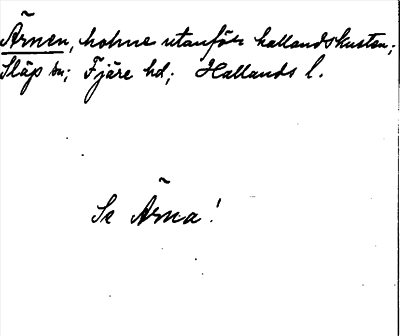 Ärnen, holme utanför hallandskusten;
Släp sn; Fjäre hd; Hallands l.
Se Ärna!